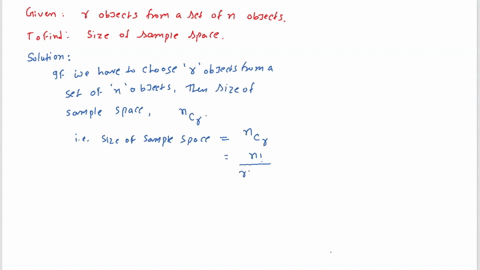 Given: r objects from a set of n objects.
To find: Size of sample space.
Solution:
If we have to choose 'r' objects from a
set of 'n' objects, Then size of
sample space, nCr.
i.e. size of sample space = nCr
= n!
r.